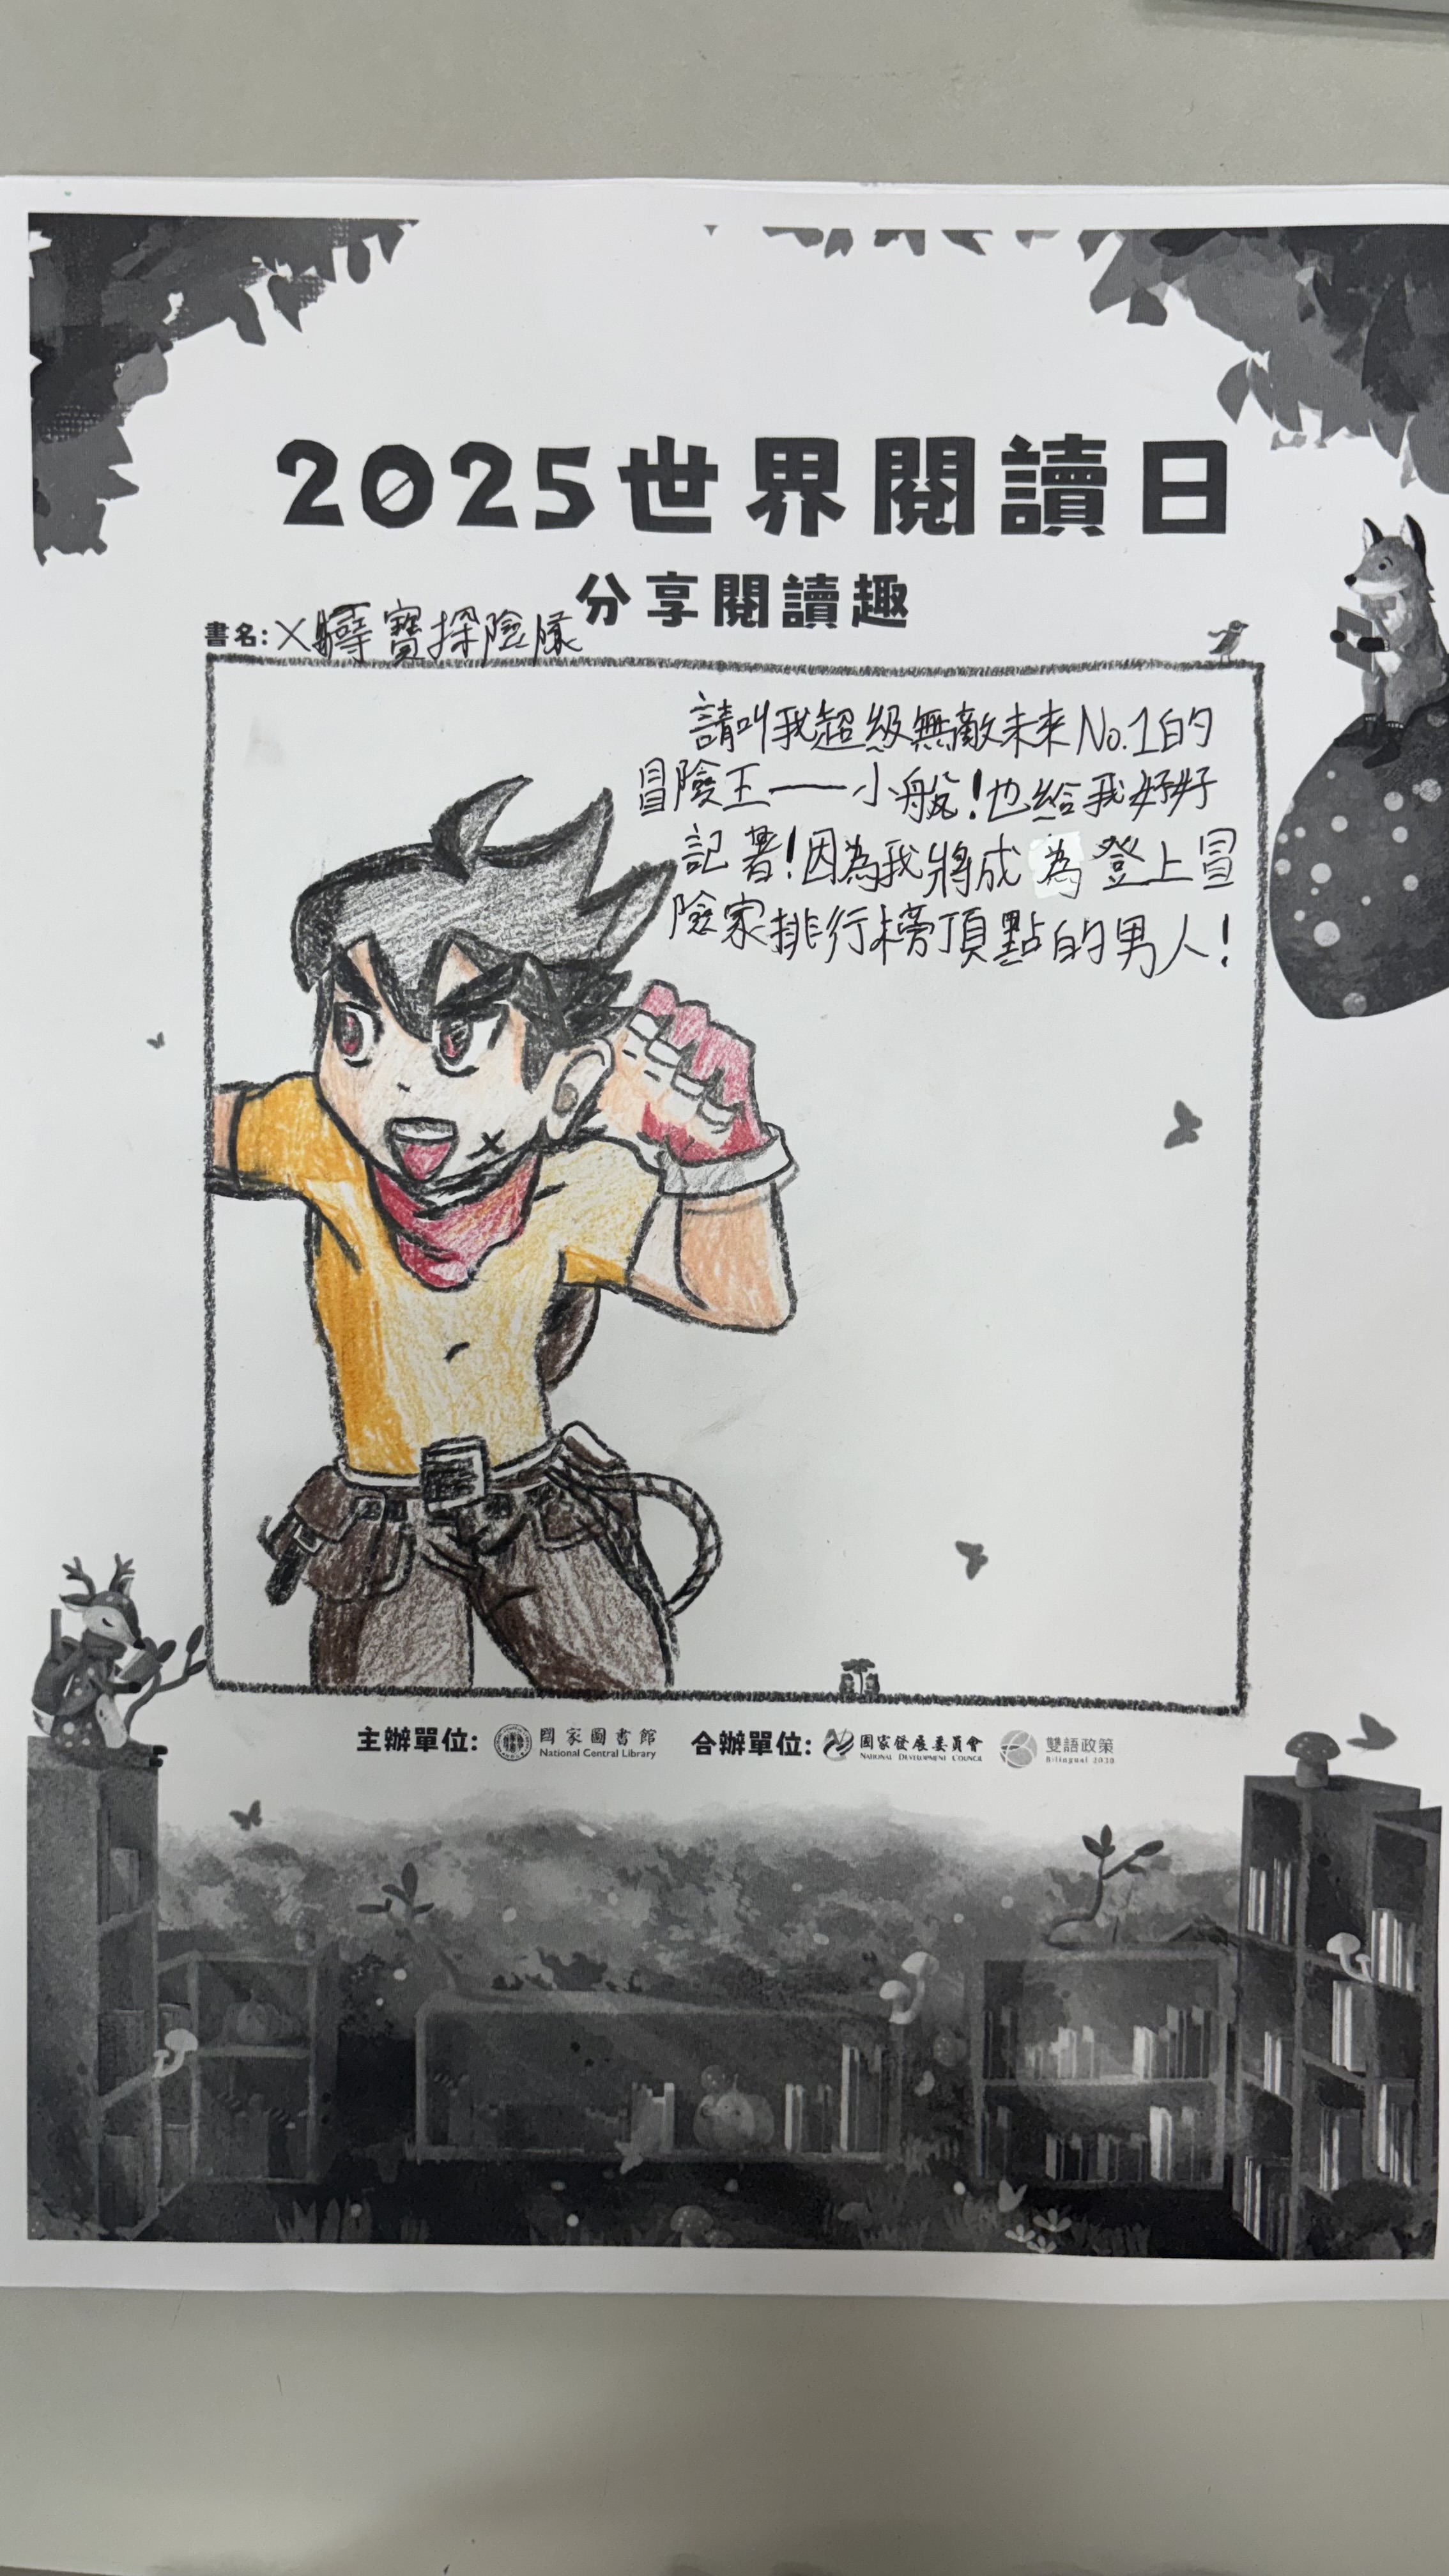 2025世界閱讀日
分享閱讀趣
書名:X 寶探險隊
請叫我超級無敵未來No.1的
冒險王——小艘!也給我好好
記著!因為我將成為登上冒
險家排行榜頂點的男人!
主辦單位: 國家圖書館 National Central Library 合辦單位: 國家發展委員會 NATIONAL DEVELOPMENT COUNCIL 雙語政策 Bilingual 2030